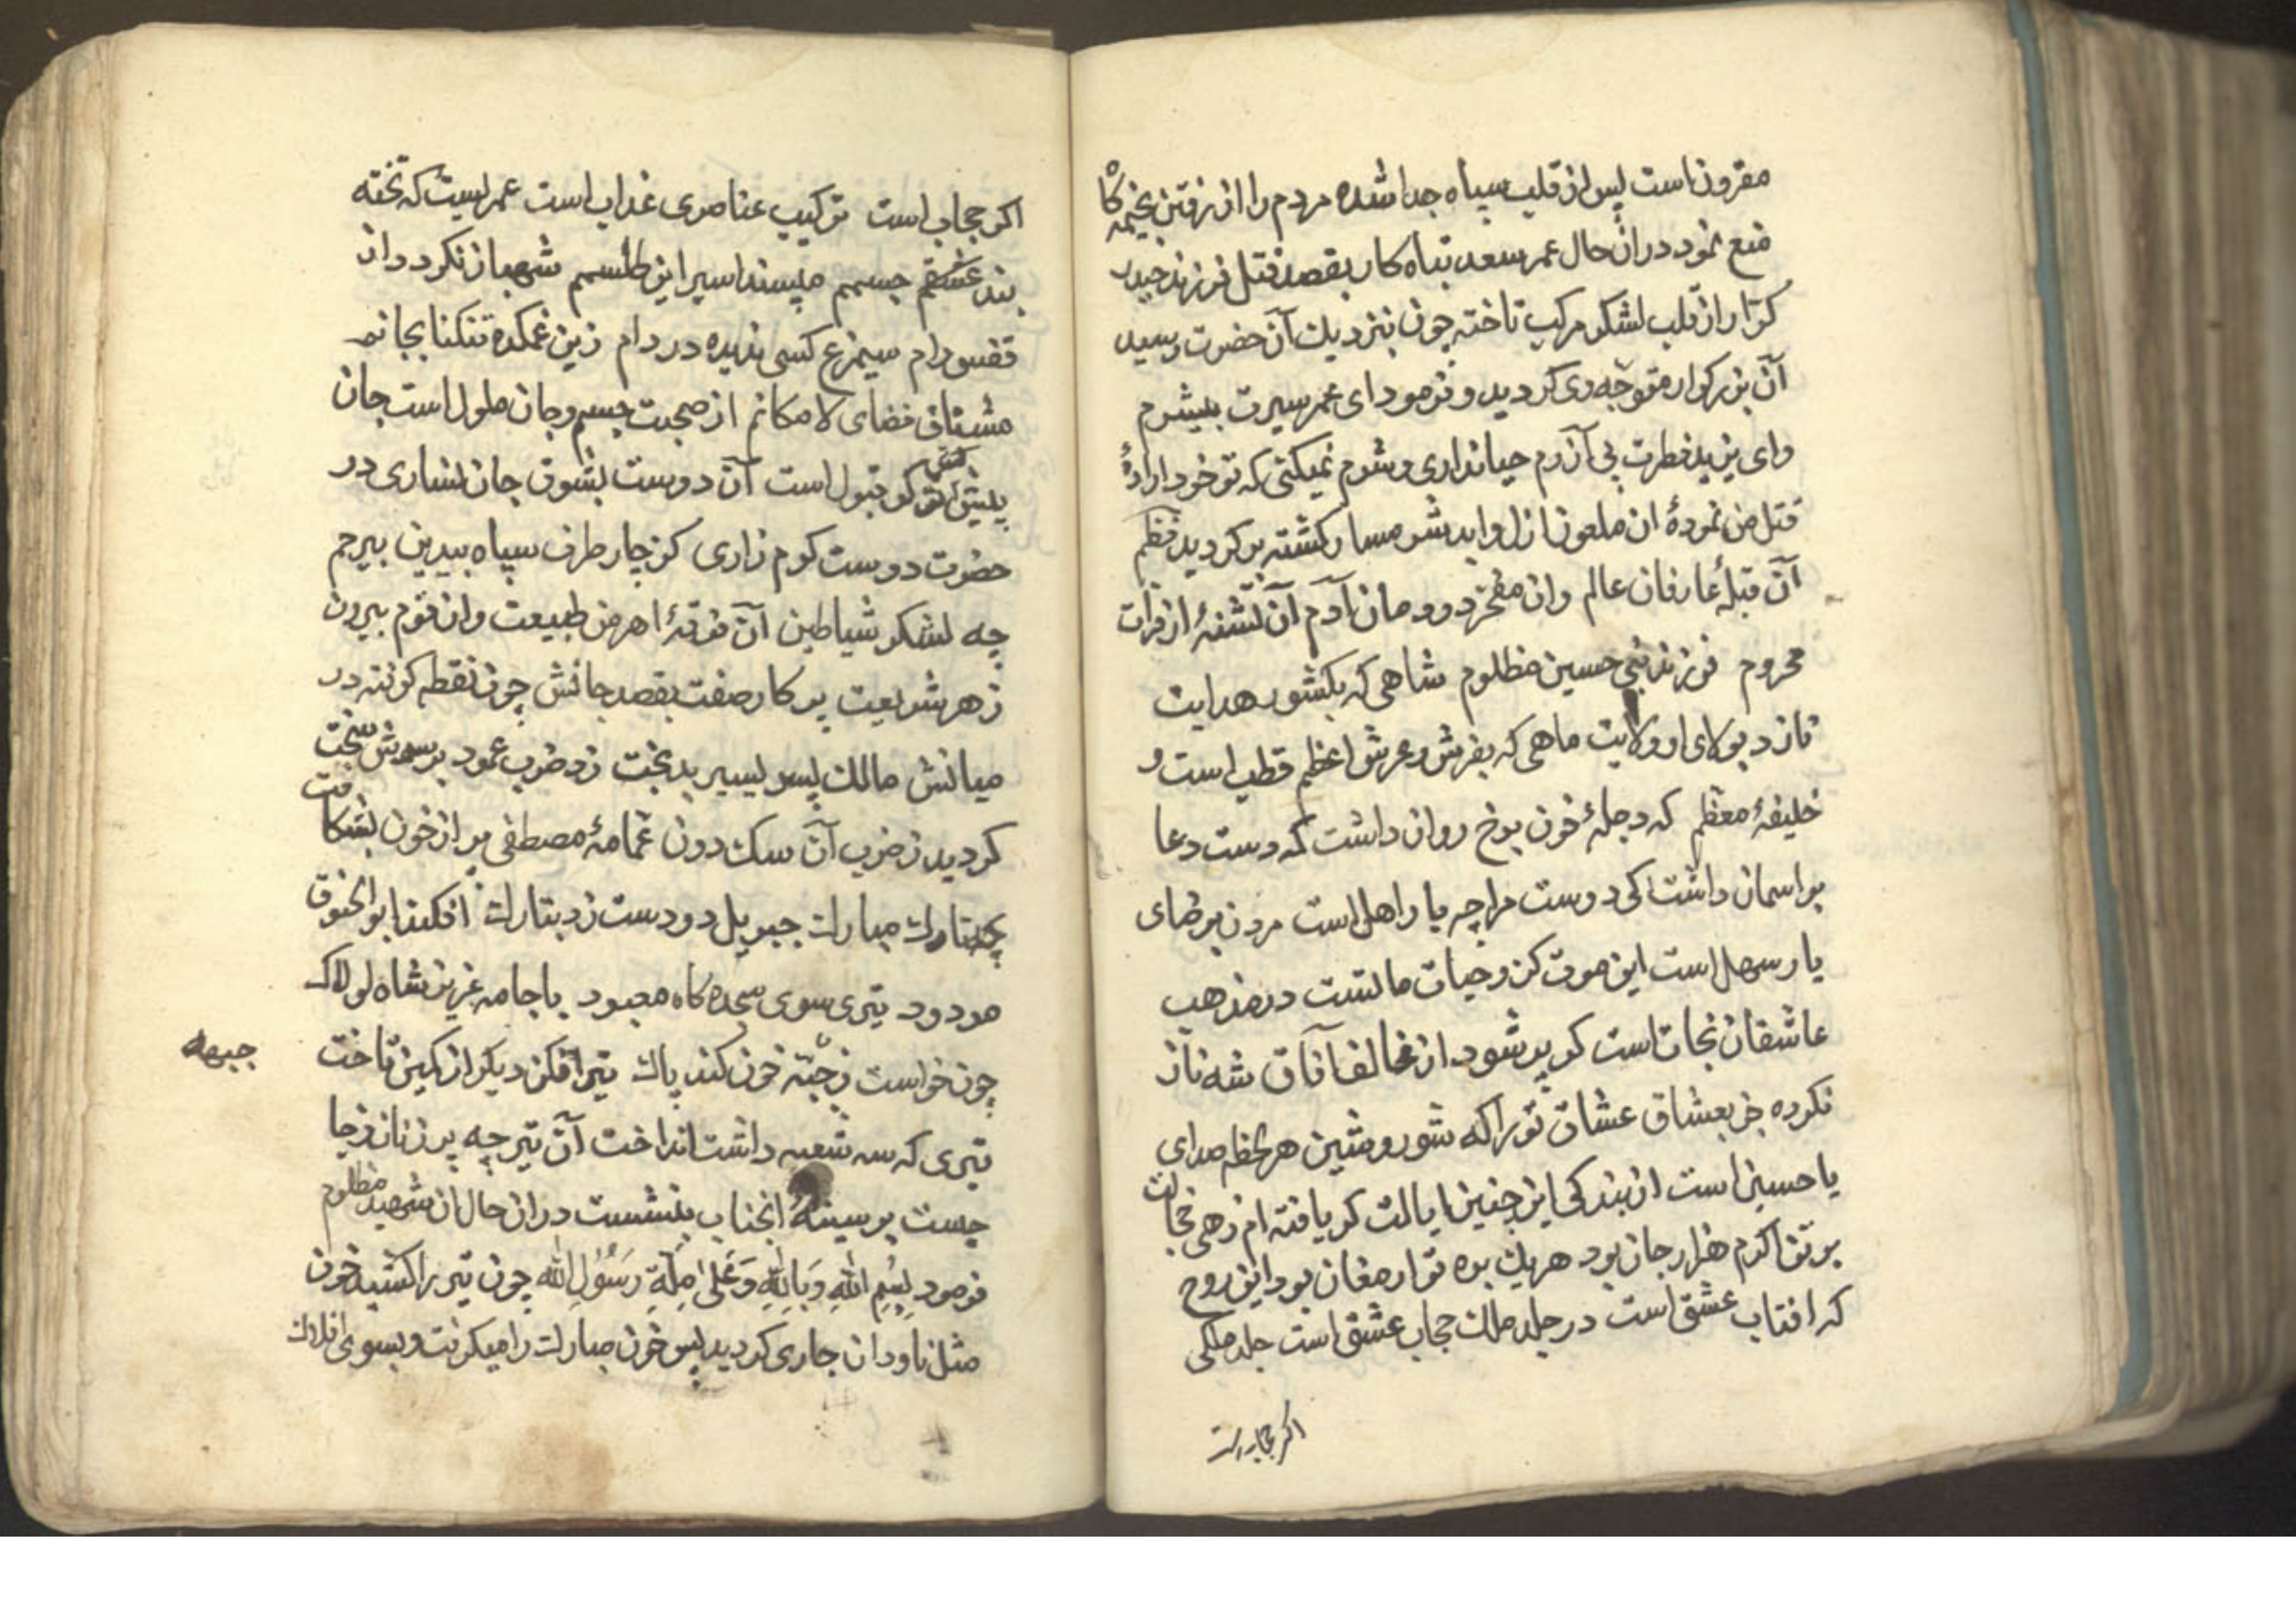 مقرونست پس از قلب سپاه جدا شده مردم را از رفتن بخیمه کاه
منع نمود دران حال عمر سعد تباه کار بقصد قتل فرزند حیدر
کرّار از قلب لشکر مرکب تاخته چون بنزدیك آن حضرت رسید
آن بزرکوار متوجّه وی کردید و فرمود ای عمر سیرت بیشرم
وای یزید فطرت بی آزرم حیا نداری و شرم نمیکنی که تو خود ارادهٔ
قتل من نمودهٔ ان ملعون ازل و ابد شرمسار کشته بر کردید نظم
آن قبلهٔ عارفان عالم وان مفخر دودمان آدم آن تشنهٔ از فرات
محروم فرزند نبی حسین مظلوم شاهی که بکشور هدایت
نازد بولای او ولایت ماهی که بفرش و عرش اعظم قطب است و
خلیفهٔ معظم که دجلهٔ خون برخ روان داشت که دست دعا
بر اسمان داشت کی دوست مرا چه یار اهل است مردن برضای
یار سهل است این موت کز و حیات مالتست در مذهب
عاشقان نجات است کر پر شود از مخالف آفاق شه ناز
نکرده جز بعشاق عشاق تو را که شور و شین هر لحظه صدای
یا حسین است از بندکی این چنین ایالت کر یافته ام زهی خجالت
بر تن اکرم هزار جان بود هریك بره تو ارمغان بود این روح
که افتاب عشق است در جلد ملك حجاب عشق است جلد ملکی
اکر حجابست
اکر حجاب است ترکیب عناصری عذاب است عمریست که تخته
بند عشقم جسمم مپسند اسیر این طلسمم شهباز نکردد از
قفس رام سیمرغ کسی ندیده در دام زین غمکده تنکنا بجانم
مشتاق فضای لامکانم از صحبت جسم و جان ملول است جان
پیش کش تو کر قبول است آن دوست بشوق جان نثاری در
حضرت دوست کرم زاری کز چار طرف سپاه بیدین بیرحم
چه لشکر شیاطین آن فرقهٔ اهرمن طبیعت وان قوم بیرون
ز هر شریعت پرکار صفت بقصد جانش چون نقطه کرفته در
میانش مالك پسر یسیر بدبخت زد ضرب عمود بر سرش سخت
کردید ز ضرب آن سك دون عمامهٔ مصطفی پر از خون بشکافت
چه تارك مبارك جبریل دو دست زد بتارك افکند ابو الحنوق
مردود تیری سوی سجده کاه معبود با جامه عزیز شاه لولاك
چون خواست ز جبّه خون کند پاك تیر افکن دیکر از کمین تاخت
جبهه
تیری که سه شعبه داشت انداخت آن تیر چه پر زنان ز جا
جست بر سینهٔ انجناب بنشست دران حال ان شهید مظلوم
فرمود بِسْمِ اللهِ وَبِاللهِ وَعَلَىٰ مِلَّةِ رَسُوْلِ الله چون تیر را کشید خون
مثل ناودان جاری کردید پس خون مبارك را میکرفت و بسوی افلاك